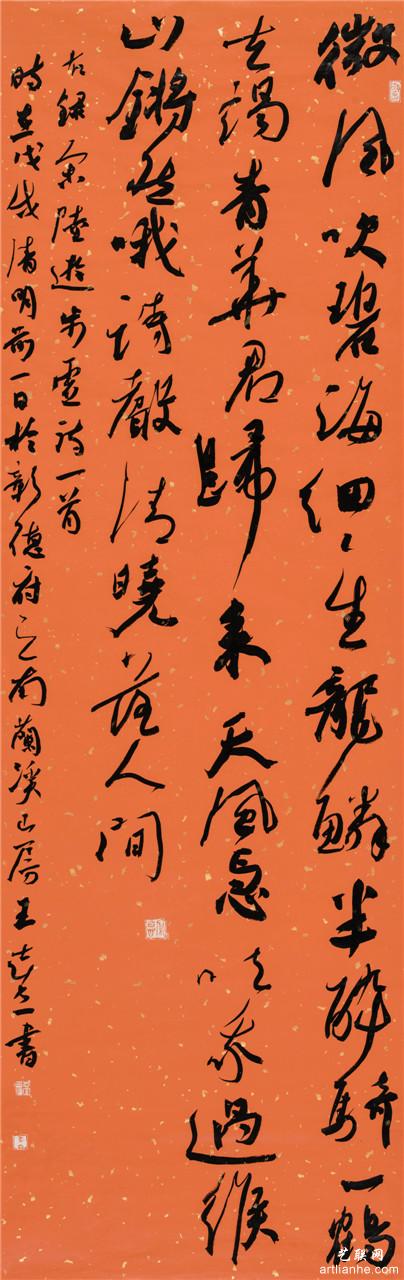 微風吹碧海細々生龍鱗半醉騎一鶴
去謁青華君歸来天風急吹我過緱
山鏘然哦詩聲清曉落人間
右録宋陸游步虛詩一首
時在戊戌清明前一日於彰德府之南蘭溪山房王書
艺联网
artlianhe.com